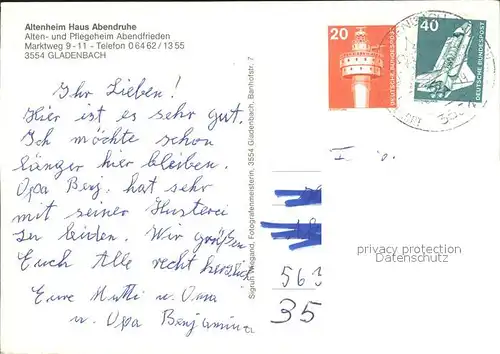 Altenheim Haus Abendruhe
Alten- und Pflegeheim Abendfrieden
Marktweg 9 - 11 - Telefon 0 64 62 / 13 55
3554 GLADENBACH
20
DEUTSCHE BUNDESPOST
40
DEUTSCHE BUNDESPOST
Ihr Lieben!
Hier ist es sehr gut.
Ich möchte schon
länger hier bleiben.
Opa Benj. hat sehr
mit seiner Husterei
zu leiden. Wir grüßen
Euch Alle recht herzlich
Eure Mutti u. Oma
u. Opa Benjamin
Sigrun Wiegand, Fotografenmeisterin, 3554 Gladenbach, Bahnhofstr. 7
privacy protection
Datenschutz
563
35